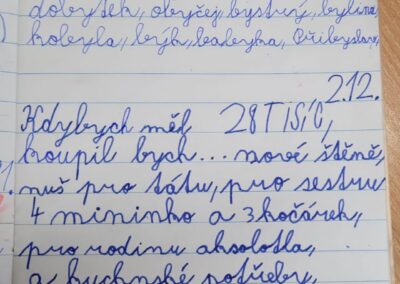 dobytek, obyčej, bystrý, bylina,
kobyla, býk, babyka, Přibyslav,
2.12.
Kdybych měl 28 TISÍC,
koupil bych... nové štěně,
nuš pro tátu, pro sestru
4 mininko a 3 kočárek,
pro rodinu aksolotla,
a kuchnské potřeby,